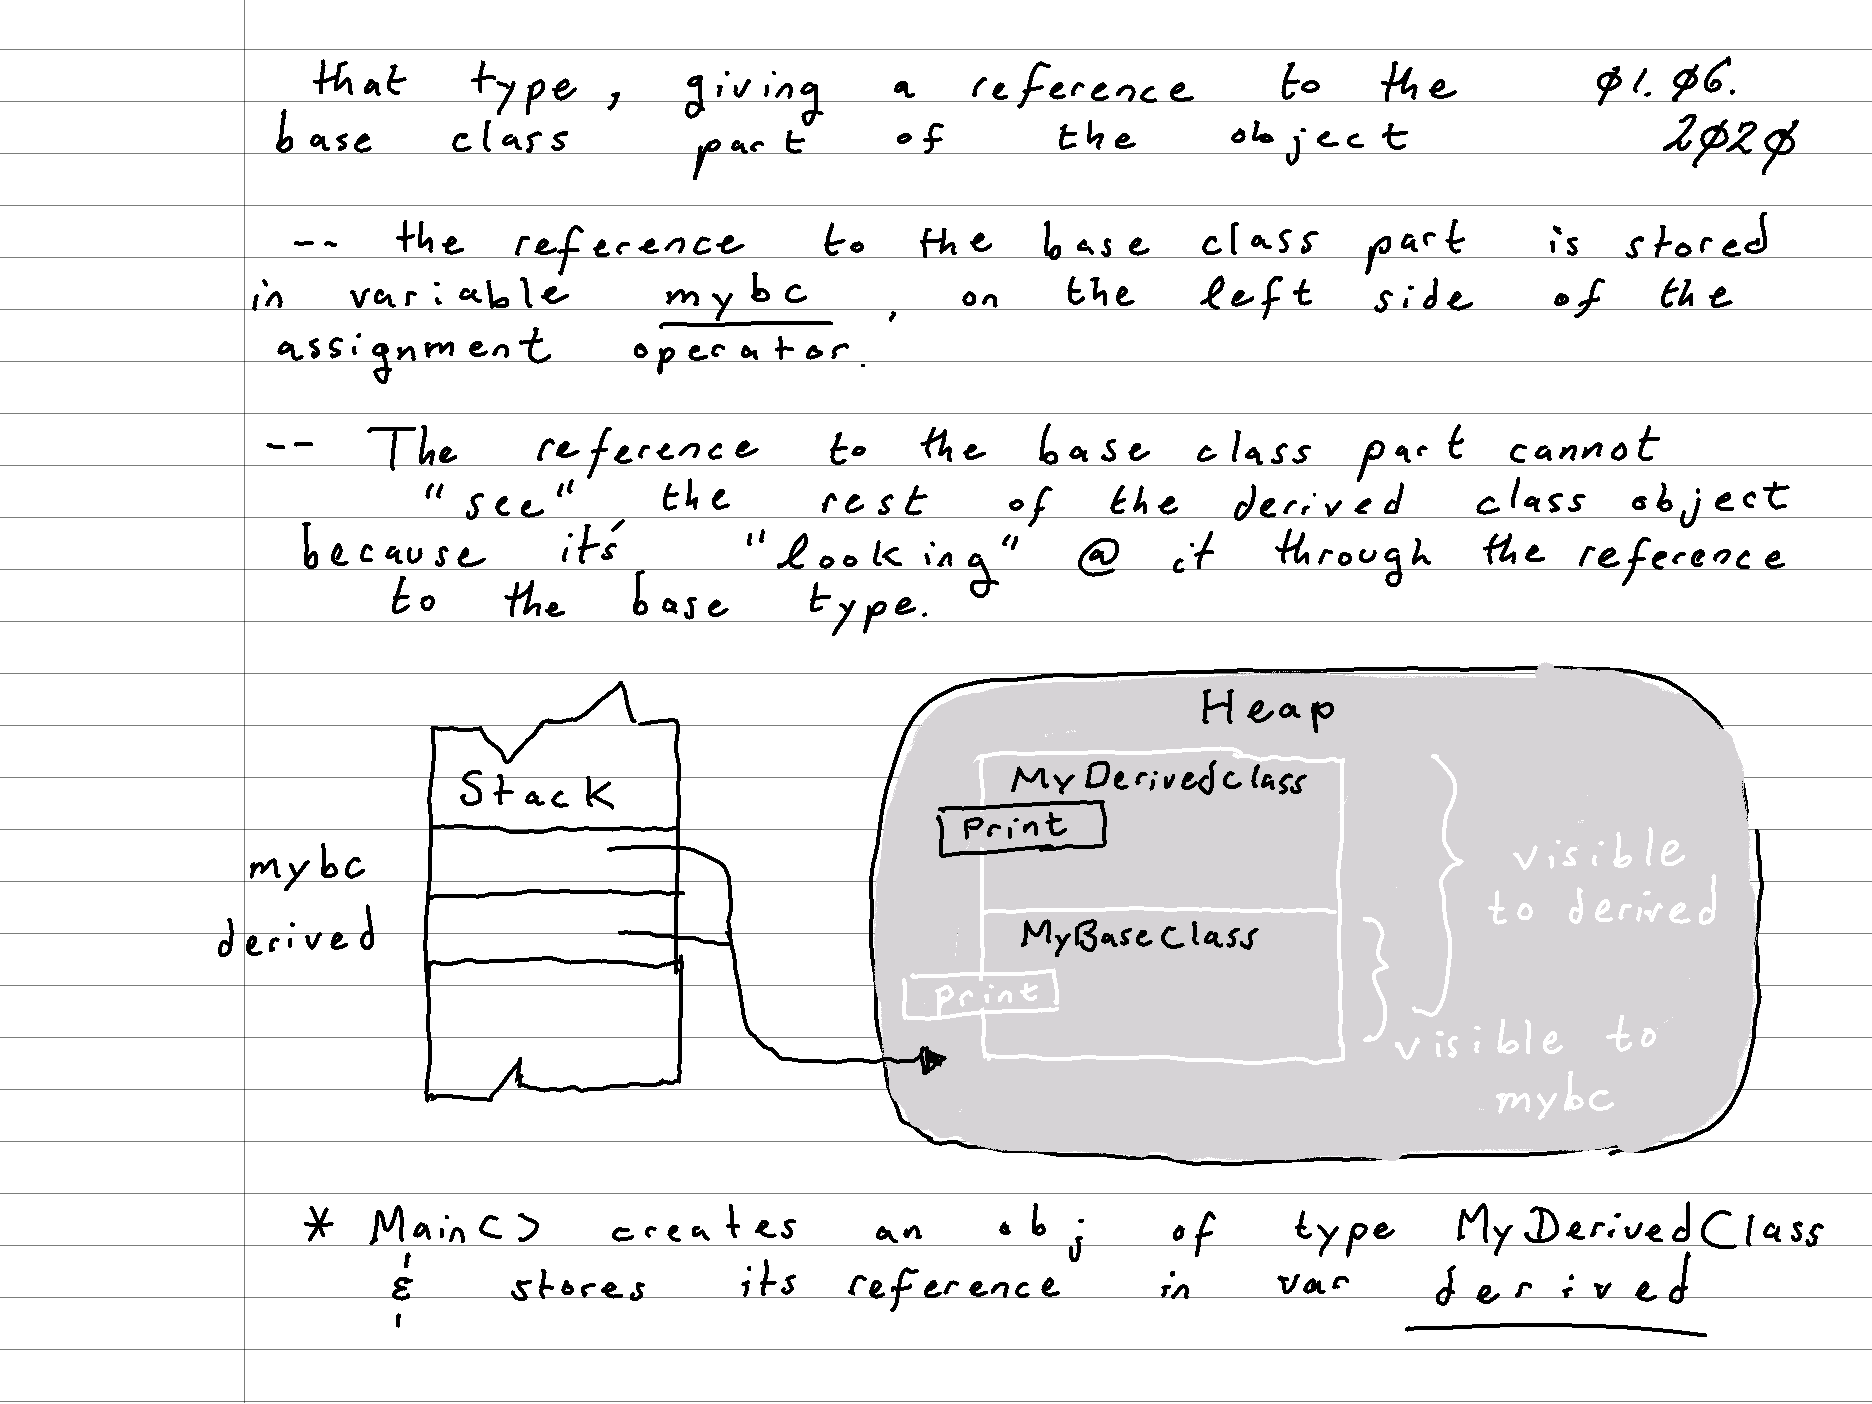 that type, giving a reference to the Ø1.Ø6.
base class part of the object 2Ø2Ø
-- the reference to the base class part is stored
in variable mybc, on the left side of the
assignment operator.
-- The reference to the base class part cannot
"see" the rest of the derived class object
because it's "looking" @ it through the reference
to the base type.
Heap
Stack
MyDerivedClass
Print
mybc
visible
to derived
derived
MyBaseClass
print
visible to
mybc
* Main() creates an obj of type MyDerivedClass
& stores its reference in var derived